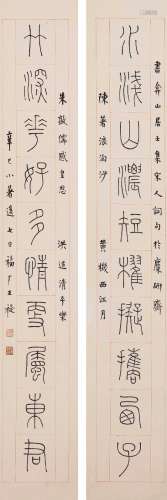 書弇山居士集宋人詞句於麋研齋
水淺山濃短櫂擬攜西子
陳著浪淘沙 黃機西江月
朱敦儒感皇恩 洪适清平樂
竹深花好多情屬東君
辛巳小暑七日福厂王禔